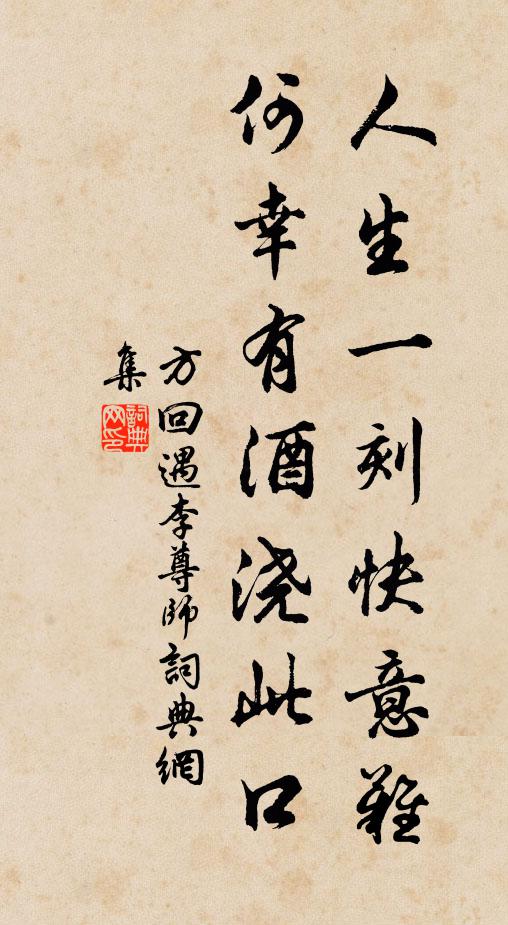 人生一刻快意難
何幸有酒浇此口
方回遇李尊師詞典網
集
詞典网印